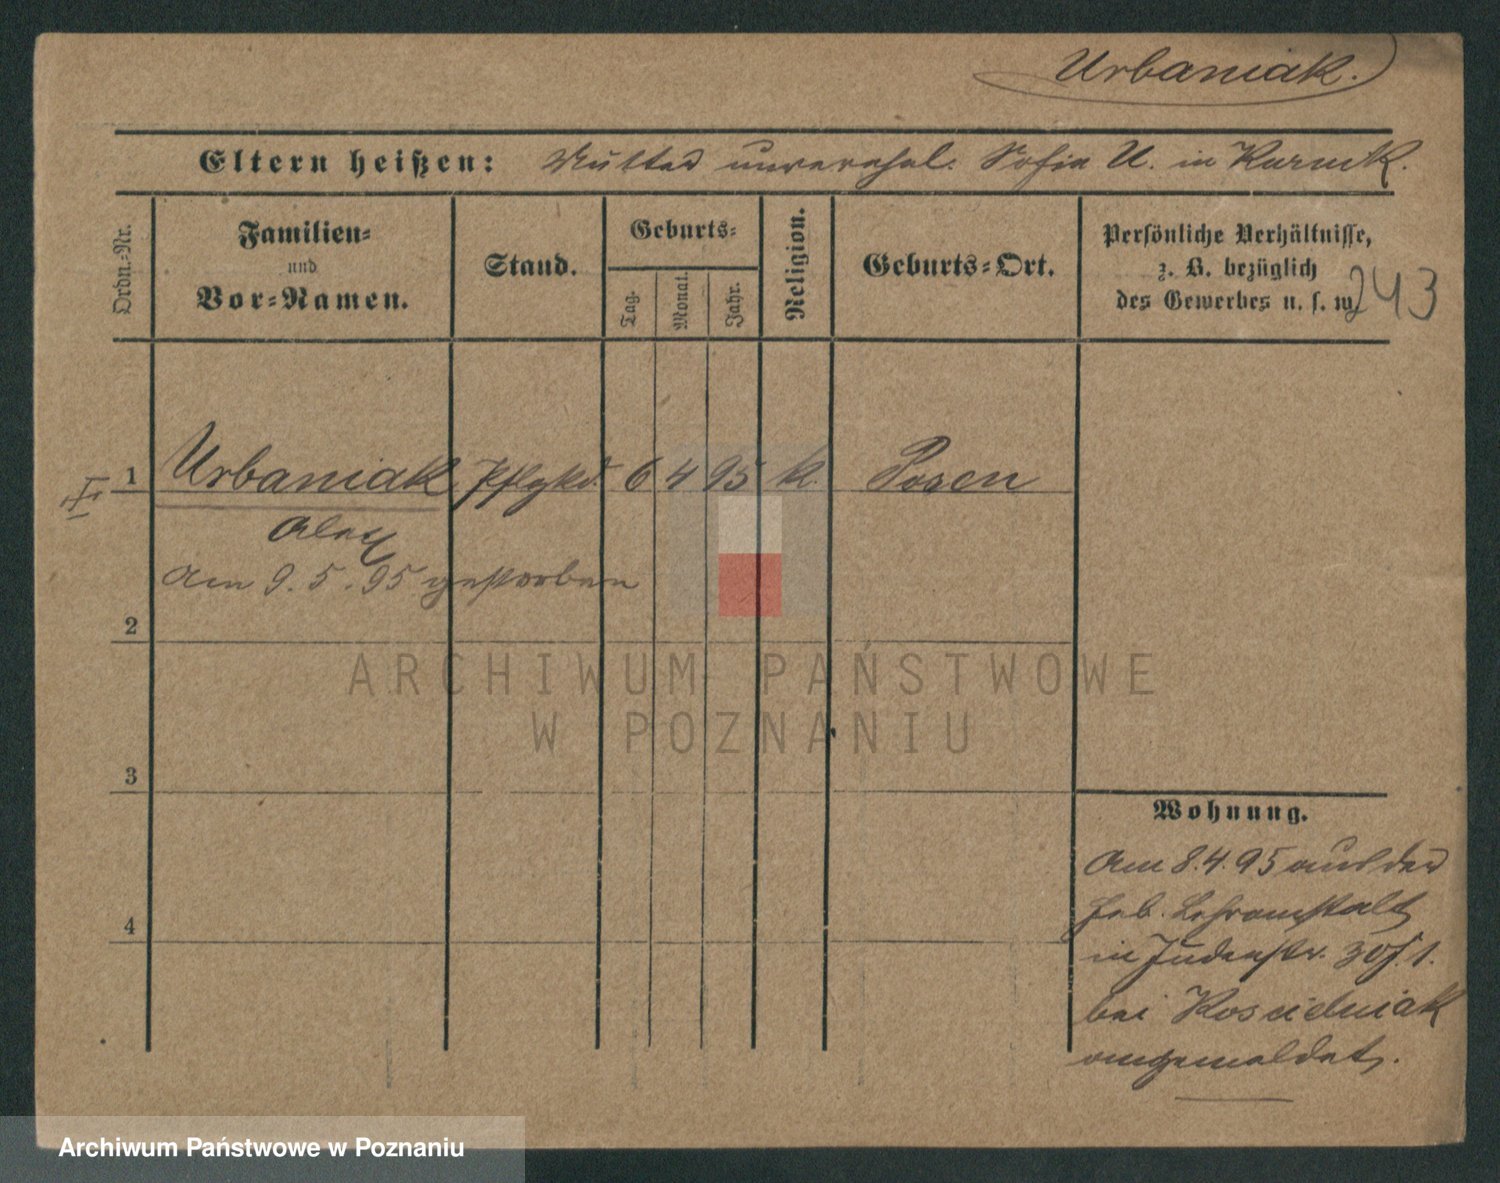 Urbaniak.
Eltern heißen: Mutter unverehel. Sofia U. in Kurnik.
Ordn.-Nr.
Familien-
und
Vor-Namen.
Stand.
Geburts-
Tag.
Monat.
Jahr.
Religion.
Geburts-Ort.
Persönliche Verhältnisse,
z. B. bezüglich
des Gewerbes u. s. w.
243
1 Urbaniak Pflgkd. 6 4 95 k. Posen
Alex
am 9. 5. 95 gestorben
2
3
4
Wohnung.
Am 8.4.95 aus der
Heb. Lehranstalt
in Judenstr. 30 f. 1.
bei Koscielniak
angemeldet.
ARCHIWUM PAŃSTWOWE
W POZNANIU
Archiwum Państwowe w Poznaniu